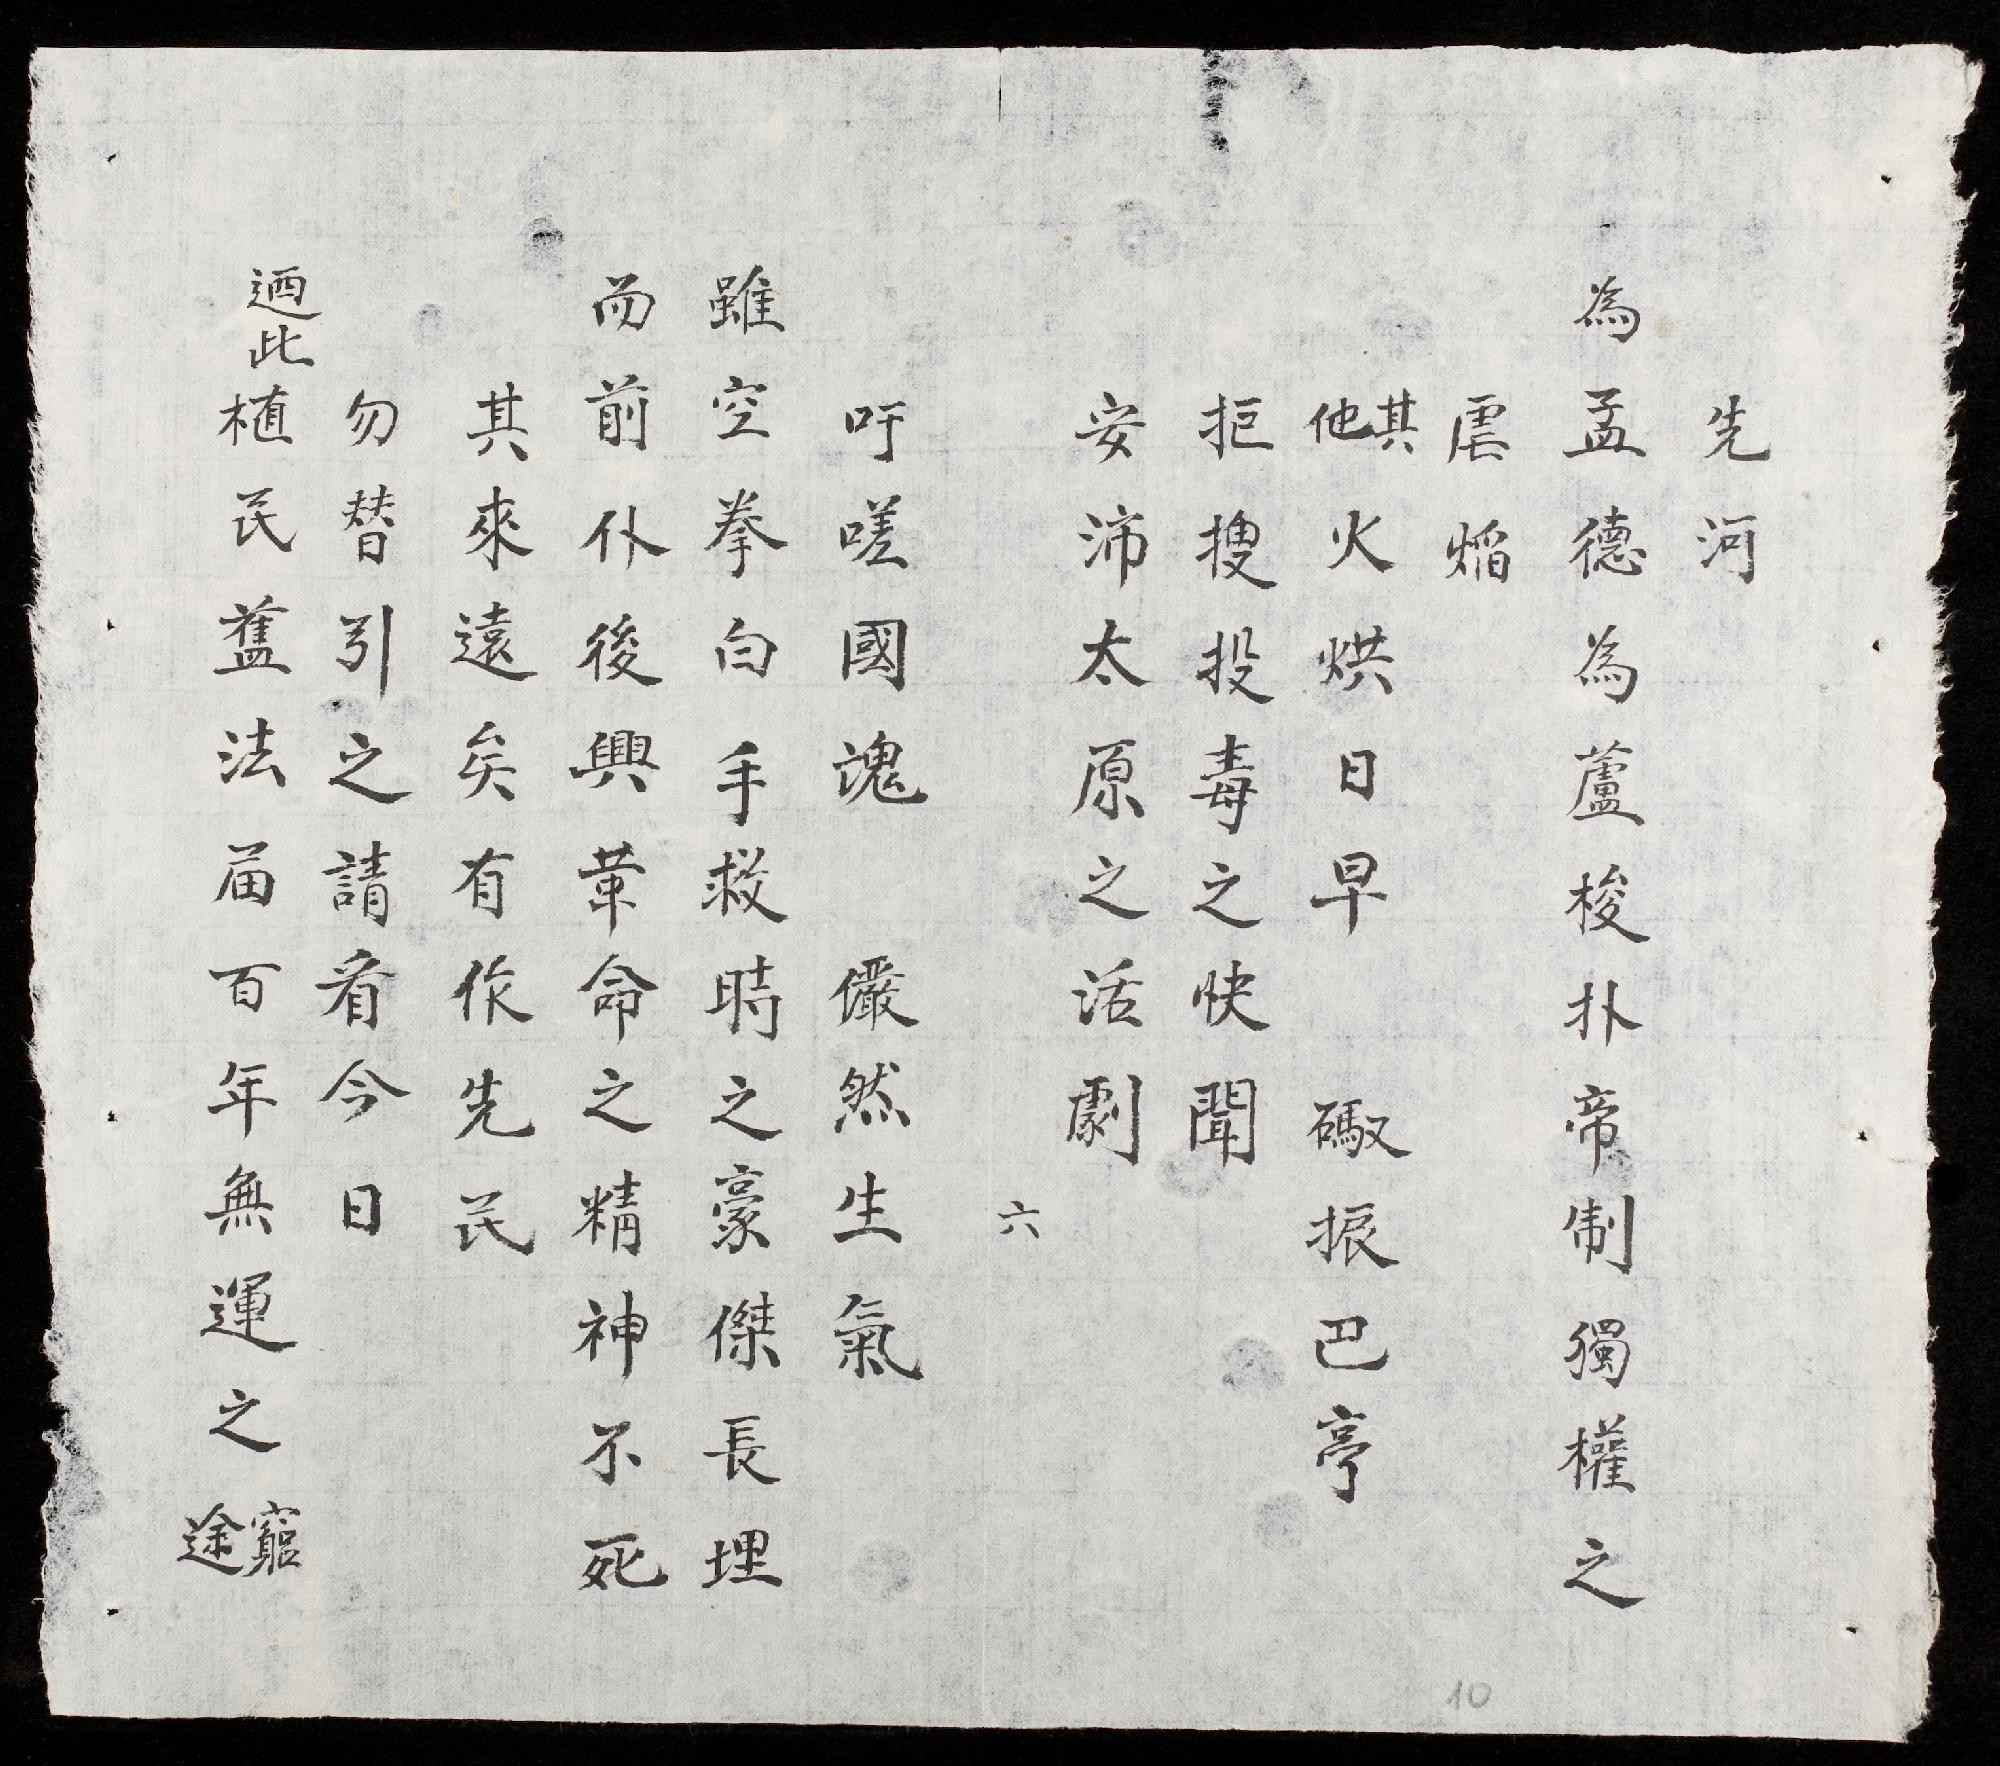 先河
為孟德為蘆梭扑帝制獨權之
虐焰
其他火烘日早　碬振巴亭
拒搜投毒之快聞
安沛太原之活劇
六
吁嗟國魂　儼然生氣
雖空拳白手救時之豪傑長埋
而前仆後興革命之精神不死
其來遠矣有作先民
勿替引之請看今日
迺此植民舊法届百年無運之窮途
10